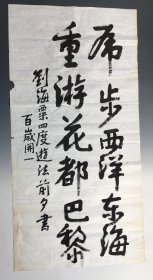 虎步西洋东海
重游花都巴黎
刘海粟四度游法前夕书
百岁开一